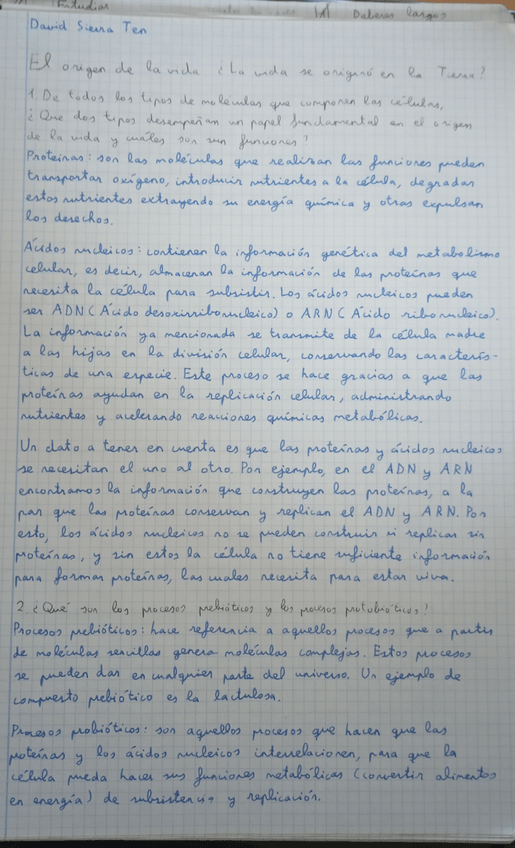 Estudiar
Deberes largos
David Sierra Ten
El origen de la vida ¿La vida se originó en la Tierra?
1. De todos los tipos de moléculas que componen las células,
¿Que dos tipos desempeñan un papel fundamental en el origen
de la vida y cuáles son sun funciones?
Proteínas: son las moléculas que realizan las funciones pueden
transportar oxígeno, introducir nutrientes a la célula, degradar
estos nutrientes extrayendo su energía química y otras expulsan
los desechos.
Ácidos nucleicos: contienen la información genética del metabolismo
celular, es decir, almacenan la información de las proteínas que
necesita la célula para subsistir. Los ácidos nucleicos pueden
ser ADN (Ácido desoxirribonucleico) o ARN (Ácido ribonucleico).
La información ya mencionada se transmite de la célula madre
a las hijas en la división celular, conservando las caracterís-
ticas de una especie. Este proceso se hace gracias a que las
proteínas ayudan en la replicación celular, administrando
nutrientes y acelerando reacciones químicas metabólicas.
Un dato a tener en cuenta es que las proteínas y ácidos nucleicos
se necesitan el uno al otro. Por ejemplo, en el ADN y ARN
encontramos la información que construyen las proteínas, a la
par que las proteínas conservan y replican el ADN y ARN. Por
esto, los ácidos nucleicos no se pueden construir ni replicar sin
proteínas, y sin estos la célula no tiene suficiente información
para formar proteínas, las cuales necesita para estar viva.
2 ¿Qué son los procesos prebióticos y los procesos protobióticos?
Procesos prebióticos: hace referencia a aquellos procesos que a partir
de moléculas sencillas genera moléculas complejas. Estos procesos
se pueden dar en cualquier parte del universo. Un ejemplo de
compuesto prebiótico es la lactulosa.
Procesos probióticos: son aquellos procesos que hacen que las
proteínas y los ácidos nucleicos interrelacionen, para que la
célula pueda hacer sus funciones metabólicas (convertir alimentos
en energía) de subsistencia y replicación.